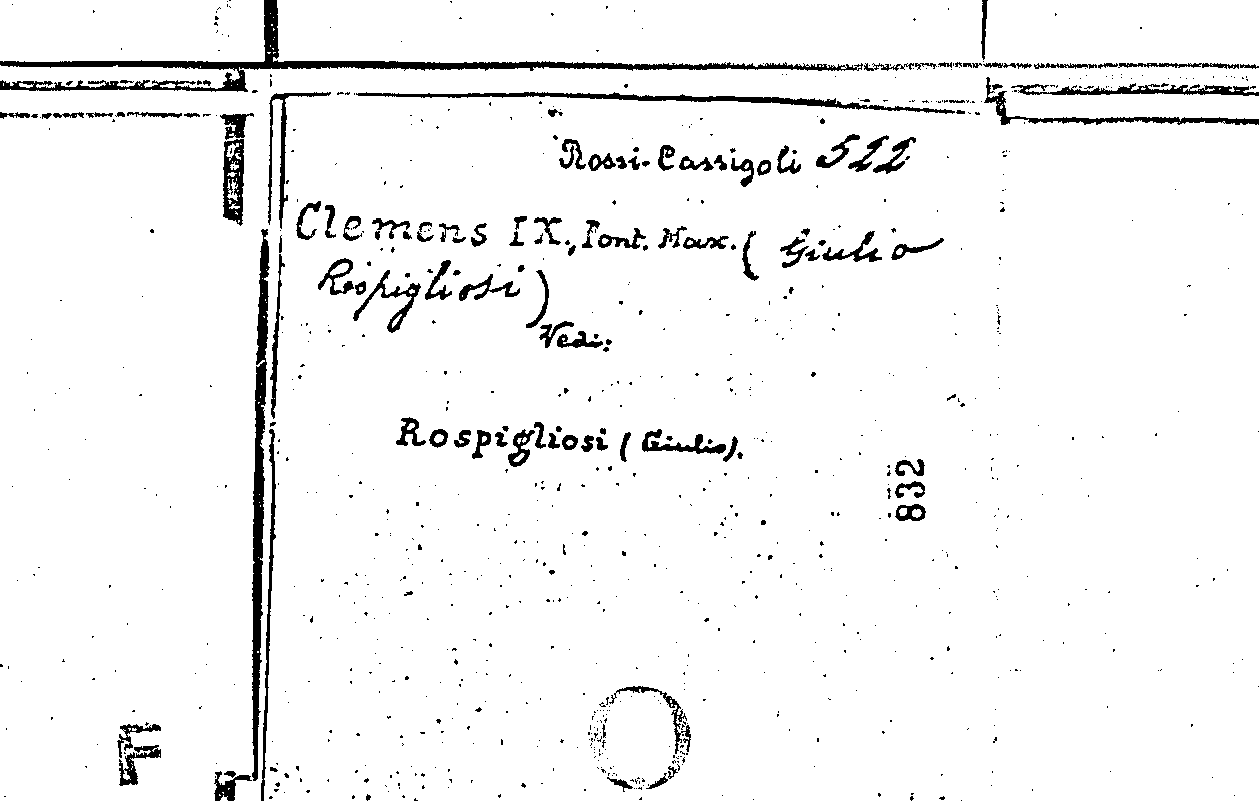 Rossi-Cassigoli 522
Clemens IX., Pont. Max. ( Giulio
Rospigliosi )
Vedi:
Rospigliosi ( Giulio).
832
F